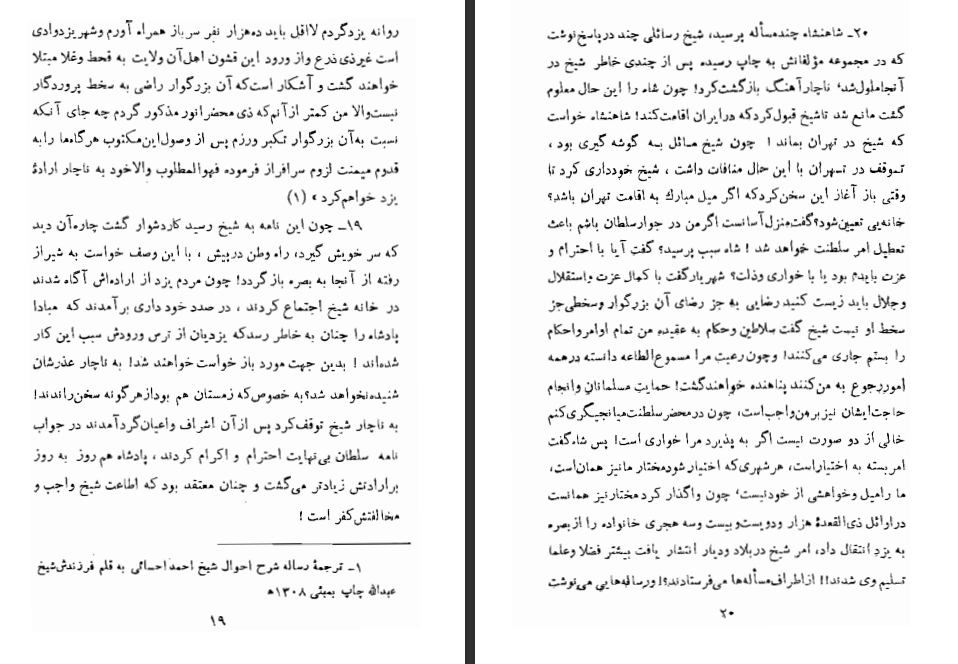 روانه یزدگردم لااقل باید ده‌هزار نفر سرباز همراه آورم وشهر یزدوادی
است غیرذی ذرع واز ورود این قشون اهل‌آن ولایت به قحط وغلا مبتلا
خواهند گشت و آشکار است‌که آن بزرگوار راضی به سخط پروردگار
نیست‌والا من کمتر ازآنم‌که ذی محضرانور مذکور گردم چه جای آنکه
نسبت به‌آن بزرگوار تکبر ورزم پس از وصول‌این‌مکتوب هرگاه‌ما را به
قدوم میمنت لزوم سرافراز فرموده فهوالمطلوب والاخود به ناچار ارادۀ
یزد خواهم‌کرد » (۱)
۱۹ـ چون این نامه به شیخ رسید کاردشوار گشت چاره‌آن دید
که سر خویش گیرد، راه وطن درپیش ، با این وصف خواست به شیراز
رفته از آنجا به بصره بازگردد! چون مردم یزد از اراده‌اش آگاه شدند
در خانه شیخ اجتماع کردند ، در صدد خود داری برآمدند که مبادا
پادشاه را چنان به خاطر رسدکه یزدیان از ترس ورودش سبب این کار
شده‌اند ! بدین جهت مورد باز خواست خواهند شد! به ناچار عذرشان
شنیده‌نخواهد شد؟به خصوص‌که زمستان هم بودازهرگونه سخن‌راندند!
به ناچار شیخ توقف‌کرد پس ازآن اشراف واعیان‌گردآمدند در جواب
نامه سلطان بی‌نهایت احترام و اکرام کردند ، پادشاه هم روز به روز
برارادتش زیادتر می‌گشت و چنان معتقد بود که اطاعت شیخ واجب و
مخالفتش‌کفر است !
۱ـ ترجمۀ رساله شرح احوال شیخ احمد احسائی به قلم فرزندش‌شیخ
عبدالله چاپ بمبئی ۱۳۰۸ه
۱۹
۲۰ـ شاهنشاه چندمسأله پرسید، شیخ رسائلی چند درپاسخ‌نوشت
که در مجموعه مؤلفاتش به چاپ رسیده پس از چندی خاطر شیخ در
آنجاملول‌شد، ناچارآهنگ بازگشت‌کرد! چون شاه را این حال معلوم
گشت مانع شد تاشیخ قبول‌کردکه درایران اقامت‌کند! شاهنشاه خواست
که شیخ در تهران بماند ! چون شیخ مائل به گوشه گیری بود ،
توقف در تهران با این حال منافات داشت ، شیخ خودداری کرد تا
وقتی باز آغاز این سخن‌کردکه اگر میل مبارك به اقامت تهران باشد؟
خانه‌یی تعیین‌شود؟گفت‌منزل‌آسانست اگرمن در جوارسلطان باشم باعث
تعطیل امر سلطنت خواهد شد ! شاه سبب پرسید؟ گفت آیا با احترام و
عزت بایدم بود یا با خواری وذلت؟ شهریارگفت با کمال عزت واستقلال
وجلال باید زیست کنید رضایی به جز رضای آن بزرگوار وسخطی‌جز
سخط او نیست شیخ گفت سلاطین وحکام به عقیده من تمام اوامرواحکام
را بستم جاری می‌کنند! وچون رعیت مرا مسموع‌الطاعه دانسته درهمه
اموررجوع به من‌کنند پناهنده خواهندگشت! حمایت مسلمانان وانجام
حاجت‌ایشان نیز برمن‌واجب‌است، چون درمحضرسلطنت‌میانجیگری‌کنم
خالی از دو صورت نیست اگر به پذیرد مرا خواری است! پس شاه‌گفت
امر بسته به اختیاراست، هرشهری‌که اختیار شودمختار مانیز همان‌است،
ما رامیل وخواهشی از خودنیست، چون واگذار کرد مختارنیز همانست
دراوائل ذی‌القعدۀ هزار ودویست‌وبیست وسه هجری خانواده را ازبصره
به یزد انتقال داد، امر شیخ دربلاد ودیار انتشار یافت بیشتر فضلا وعلما
تسلیم وی شدند!! ازاطراف‌مسأله‌ها می‌فرستادند؟! ورساله‌هایی می‌نوشت
۲۰